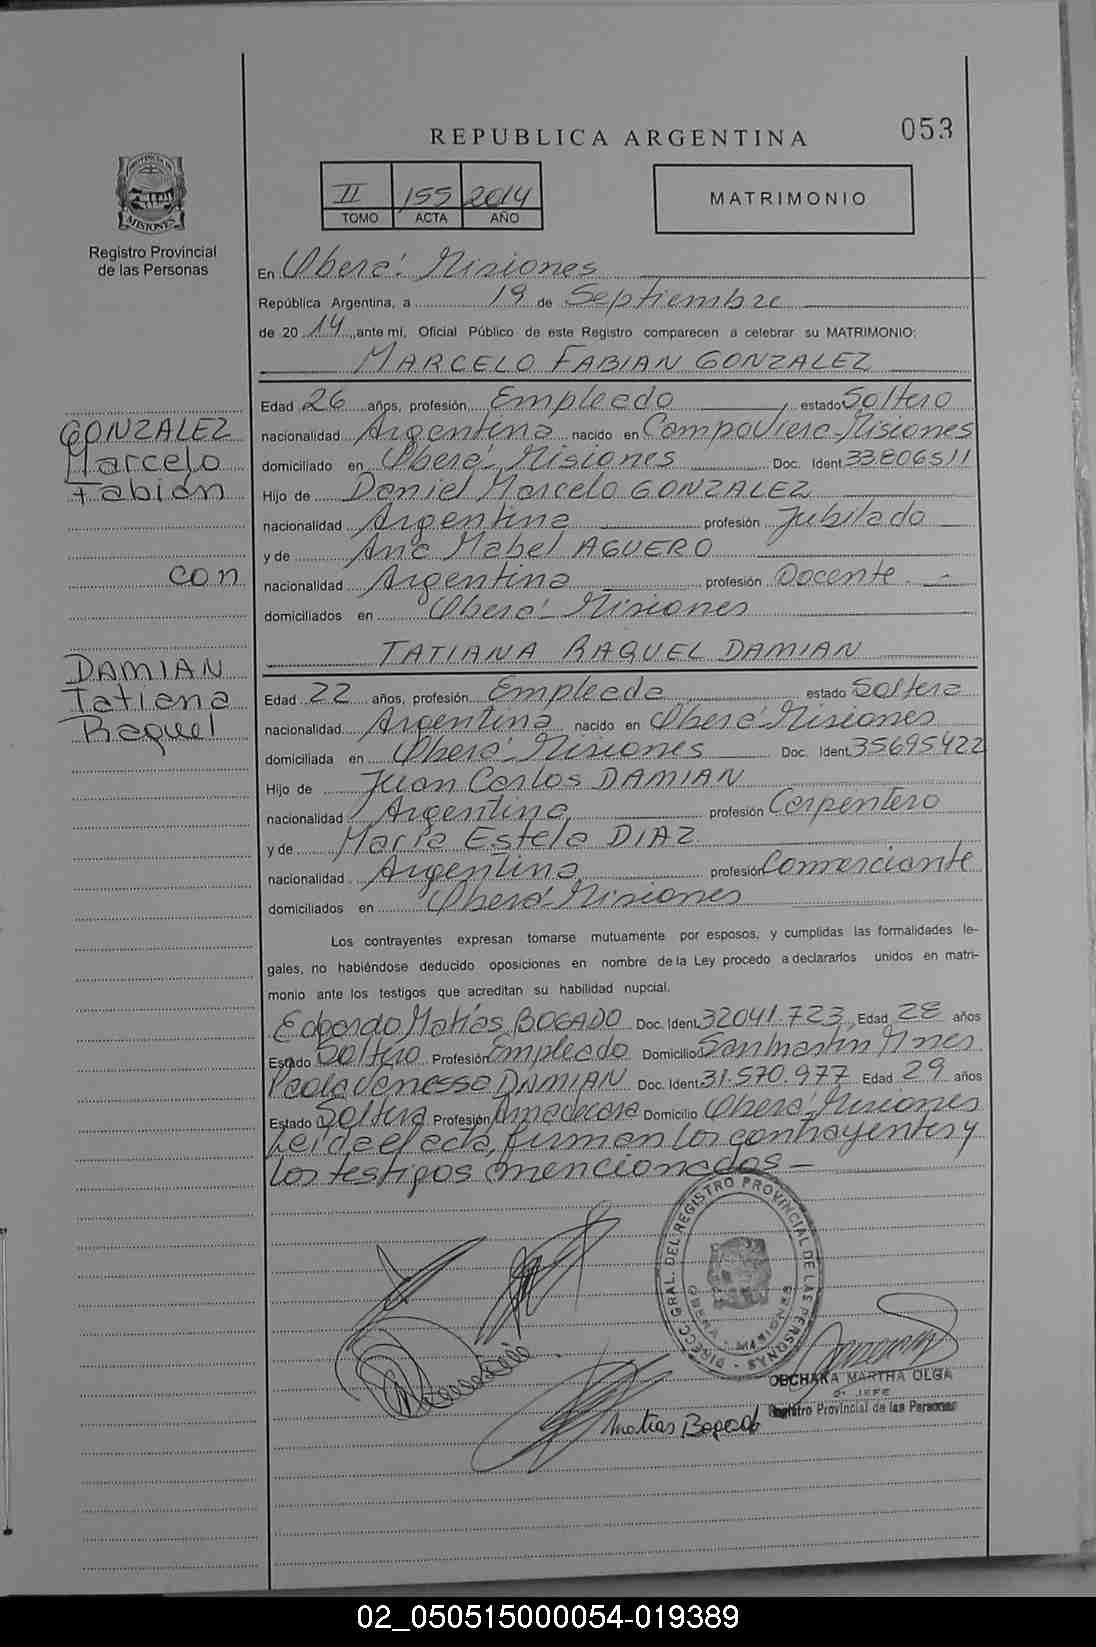 053
REPUBLICA ARGENTINA
PROVINCIA DE
MISIONES
Registro Provincial
de las Personas
II 155 2014
TOMO ACTA AÑO
MATRIMONIO
En Oberá - Misiones
República Argentina, a 19 de Septiembre
de 20 14 ante mí, Oficial Público de este Registro comparecen a celebrar su MATRIMONIO:
MARCELO FABIAN GONZALEZ
GONZALEZ
Marcelo
Fabián
con
DAMIAN
Tatiana
Raquel
Edad 26 años, profesión Empleado estado Soltero
nacionalidad Argentina nacido en Campo Viera - Misiones
domiciliado en Oberá - Misiones Doc. Ident. 33806511
Hijo de Daniel Marcelo GONZALEZ
nacionalidad Argentina profesión Jubilado
y de Ana Mabel AGUERO
nacionalidad Argentina profesión Docente
domiciliados en Oberá - Misiones
TATIANA RAQUEL DAMIAN
Edad 22 años, profesión Empleada estado Soltera
nacionalidad Argentina nacido en Oberá - Misiones
domiciliada en Oberá - Misiones Doc. Ident. 35695422
Hijo de Juan Carlos DAMIAN
nacionalidad Argentina profesión Carpintero
y de María Estela DIAZ
nacionalidad Argentina profesión Comerciante
domiciliados en Oberá - Misiones
Los contrayentes expresan tomarse mutuamente por esposos, y cumplidas las formalidades le-
gales, no habiéndose deducido oposiciones en nombre de la Ley procedo a declararlos unidos en matri-
monio ante los testigos que acreditan su habilidad nupcial.
Edgardo Matías BOGADO Doc. Ident. 32041.723, Edad 28 años
Estado Soltero Profesión Empleado Domicilio San Martín Mnes
Paola Vanessa DAMIAN Doc. Ident. 31.570.977 Edad 29 años
Estado Soltera Profesión Ama de casa Domicilio Oberá - Misiones
Leída el acta, firman los contrayentes y
los testigos mencionados -
DIRECC. GRAL. DEL REGISTRO PROVINCIAL DE LAS PERSONAS
OBERA - MISIONES
OBCHAKA MARTHA OLGA
2º JEFE
Registro Provincial de las Personas
Matias Bogado
02_050515000054-019389